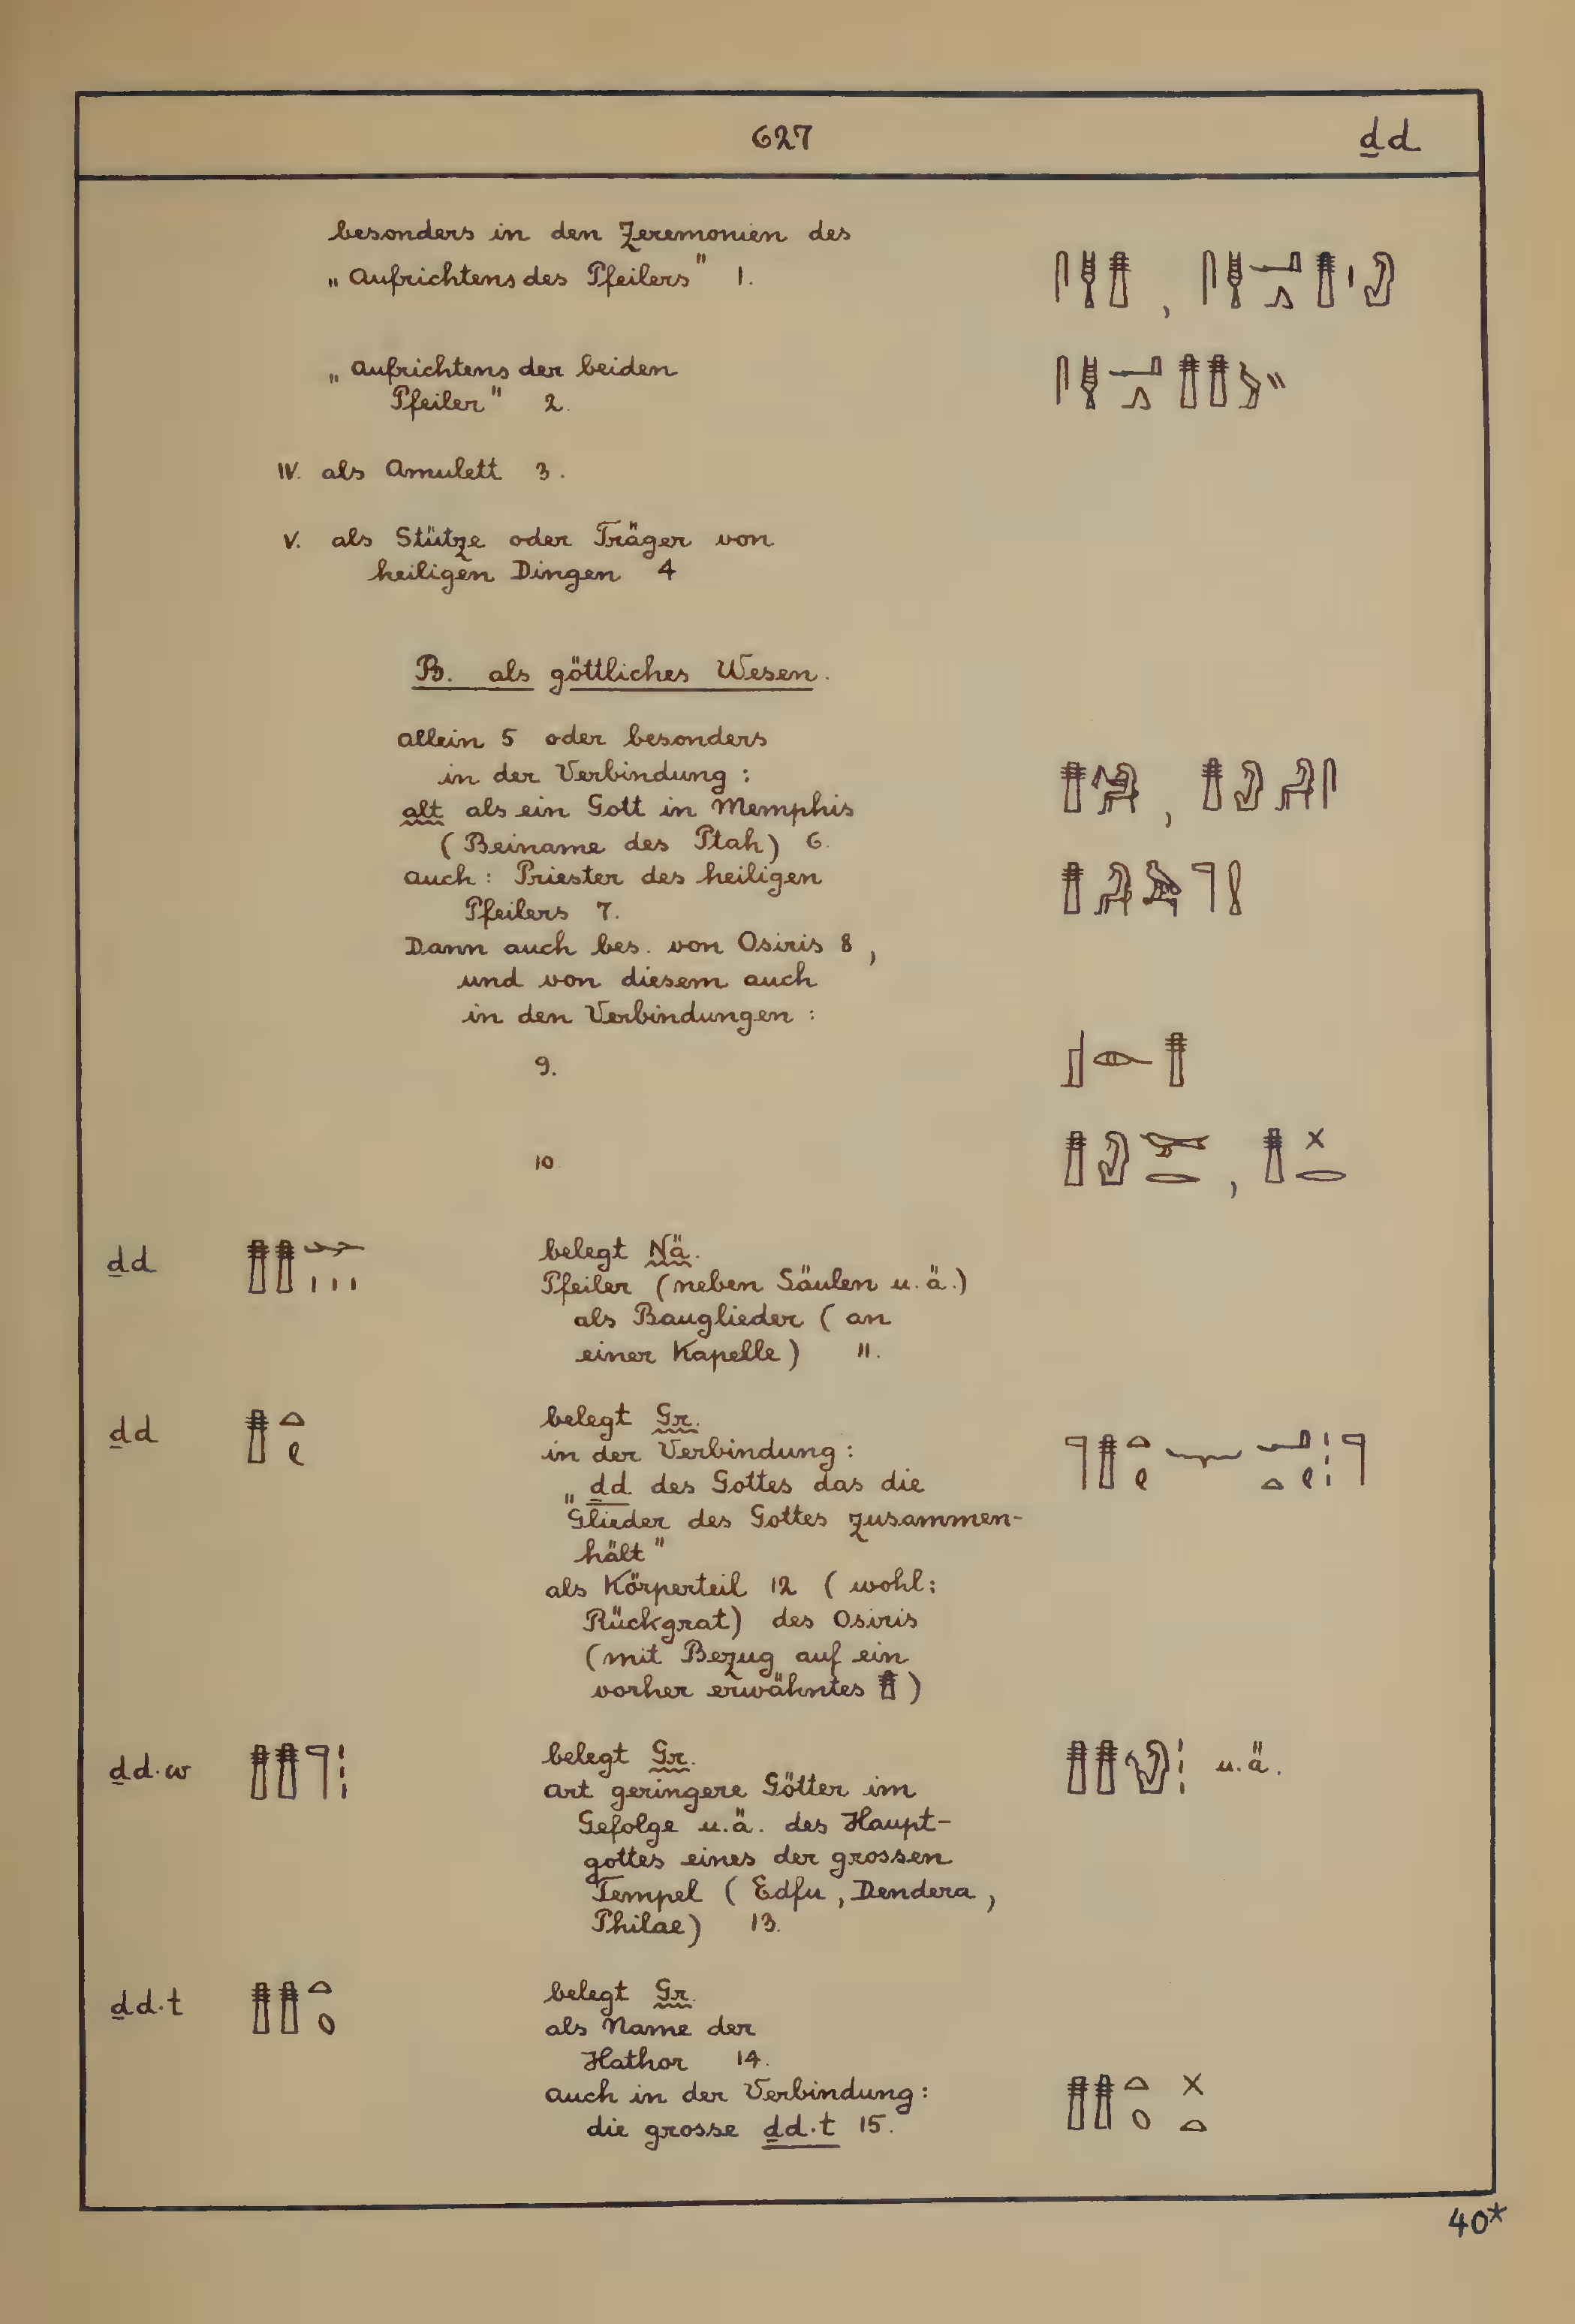 627 ḏd
besonders in den Zeremonien des
„Aufrichtens des Pfeilers" 1.
„Aufrichtens der beiden
Pfeiler" 2.
IV. als Amulett 3.
V. als Stütze oder Träger von
heiligen Dingen 4
B. als göttliches Wesen.
allein 5 oder besonders
in der Verbindung :
alt als ein Gott in Memphis
(Beiname des Ptah) 6.
auch : Priester des heiligen
Pfeilers 7.
Dann auch bes. von Osiris 8,
und von diesem auch
in den Verbindungen :
9.
10
ḏd belegt Nä.
Pfeiler (neben Säulen u. ä.)
als Bauglieder (an
einer Kapelle) 11.
ḏd belegt Gr.
in der Verbindung :
„ḏd des Gottes das die
Glieder des Gottes zusammen-
hält"
als Körperteil 12 (wohl:
Rückgrat) des Osiris
(mit Bezug auf ein
vorher erwähntes 𓊽)
ḏd.w belegt Gr. u.ä.
Art geringere Götter im
Gefolge u.ä. des Haupt-
gottes eines der grossen
Tempel (Edfu, Dendera,
Philae) 13.
ḏd.t belegt Gr.
als Name der
Hathor 14.
auch in der Verbindung:
die grosse ḏd.t 15.
40*